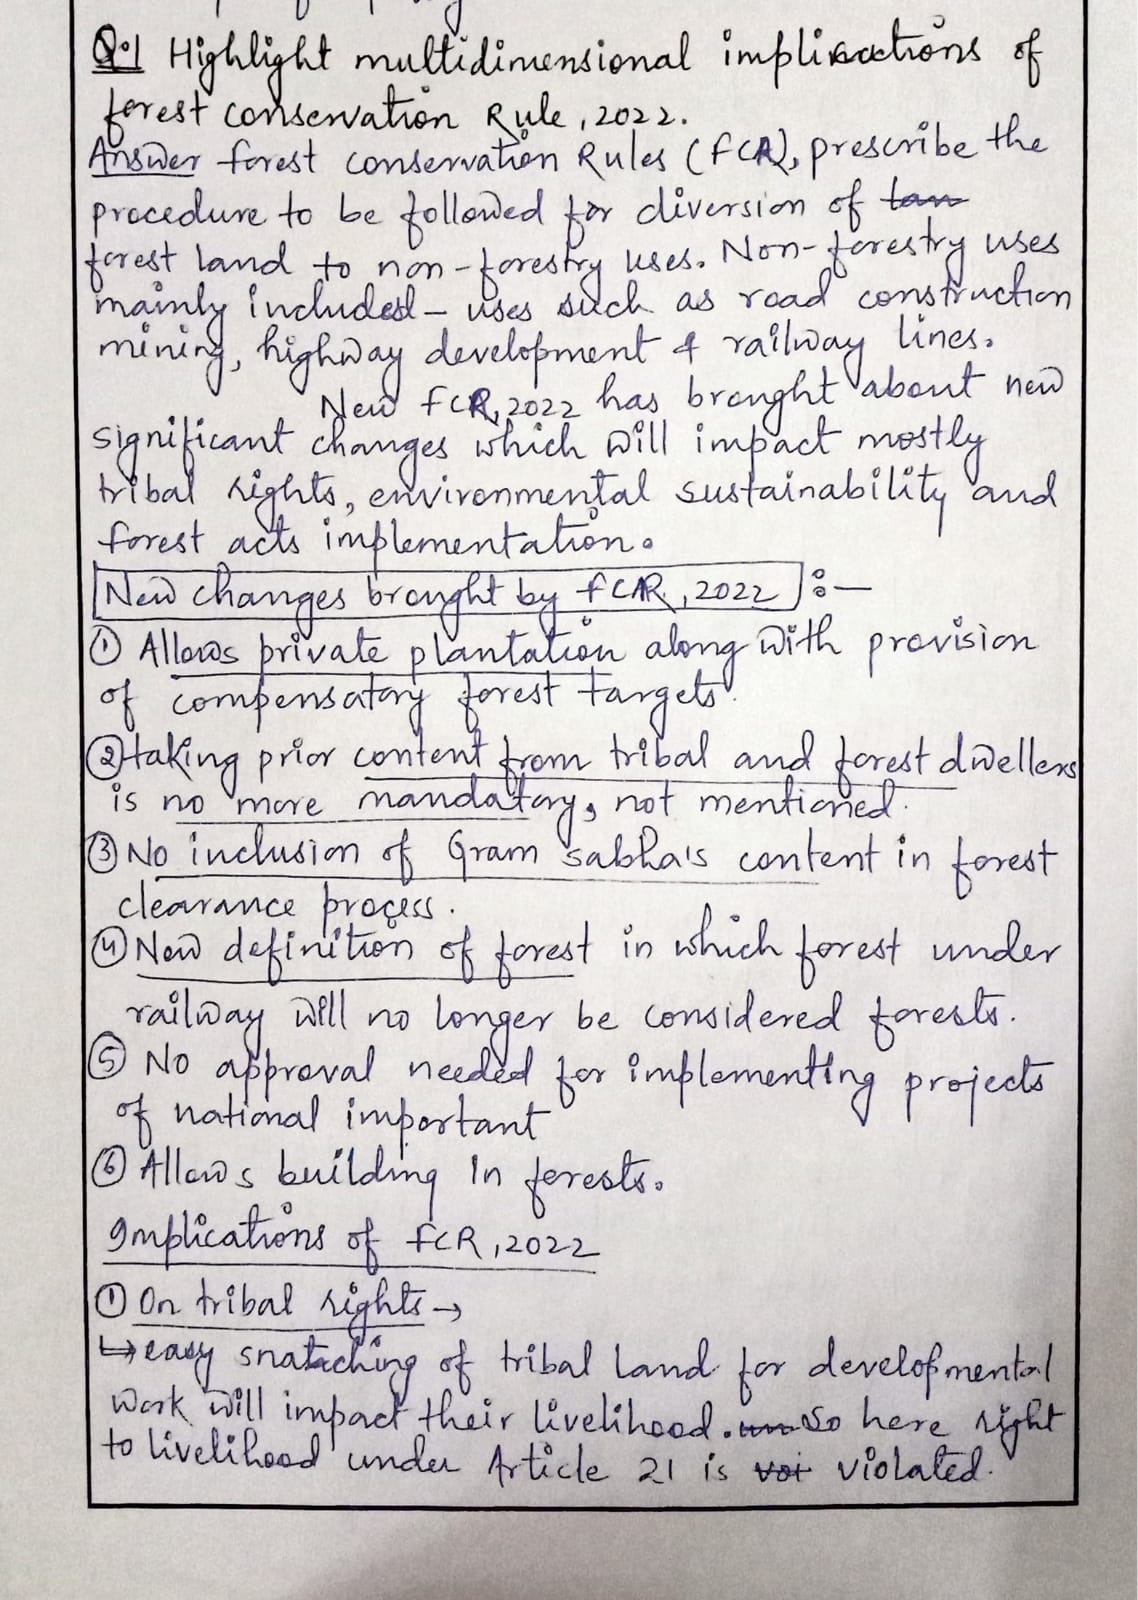 Q.1 Highlight multidimensional implications of
forest conservation Rule, 2022.
Answer forest conservation Rules (FCR), prescribe the
procedure to be followed for diversion of
forest land to non-forestry uses. Non-forestry uses
mainly included - uses such as road construction
mining, highway development & railway lines.
New FCR, 2022 has brought about new
significant changes which will impact mostly
tribal rights, environmental sustainability and
forest acts implementation.
New changes brought by FCR, 2022 :-
① Allows private plantation along with provision
of compensatory forest targets.
② taking prior content from tribal and forest dwellers
is no more mandatory, not mentioned.
③ No inclusion of Gram sabha's content in forest
clearance process.
④ New definition of forest in which forest under
railway will no longer be considered forests.
⑤ No approval needed for implementing projects
of national important
⑥ Allows building in forests.
Implications of FCR, 2022
① On tribal rights →
↳ easy snatching of tribal land for developmental
work will impact their livelihood. So here right
to livelihood under Article 21 is violated.